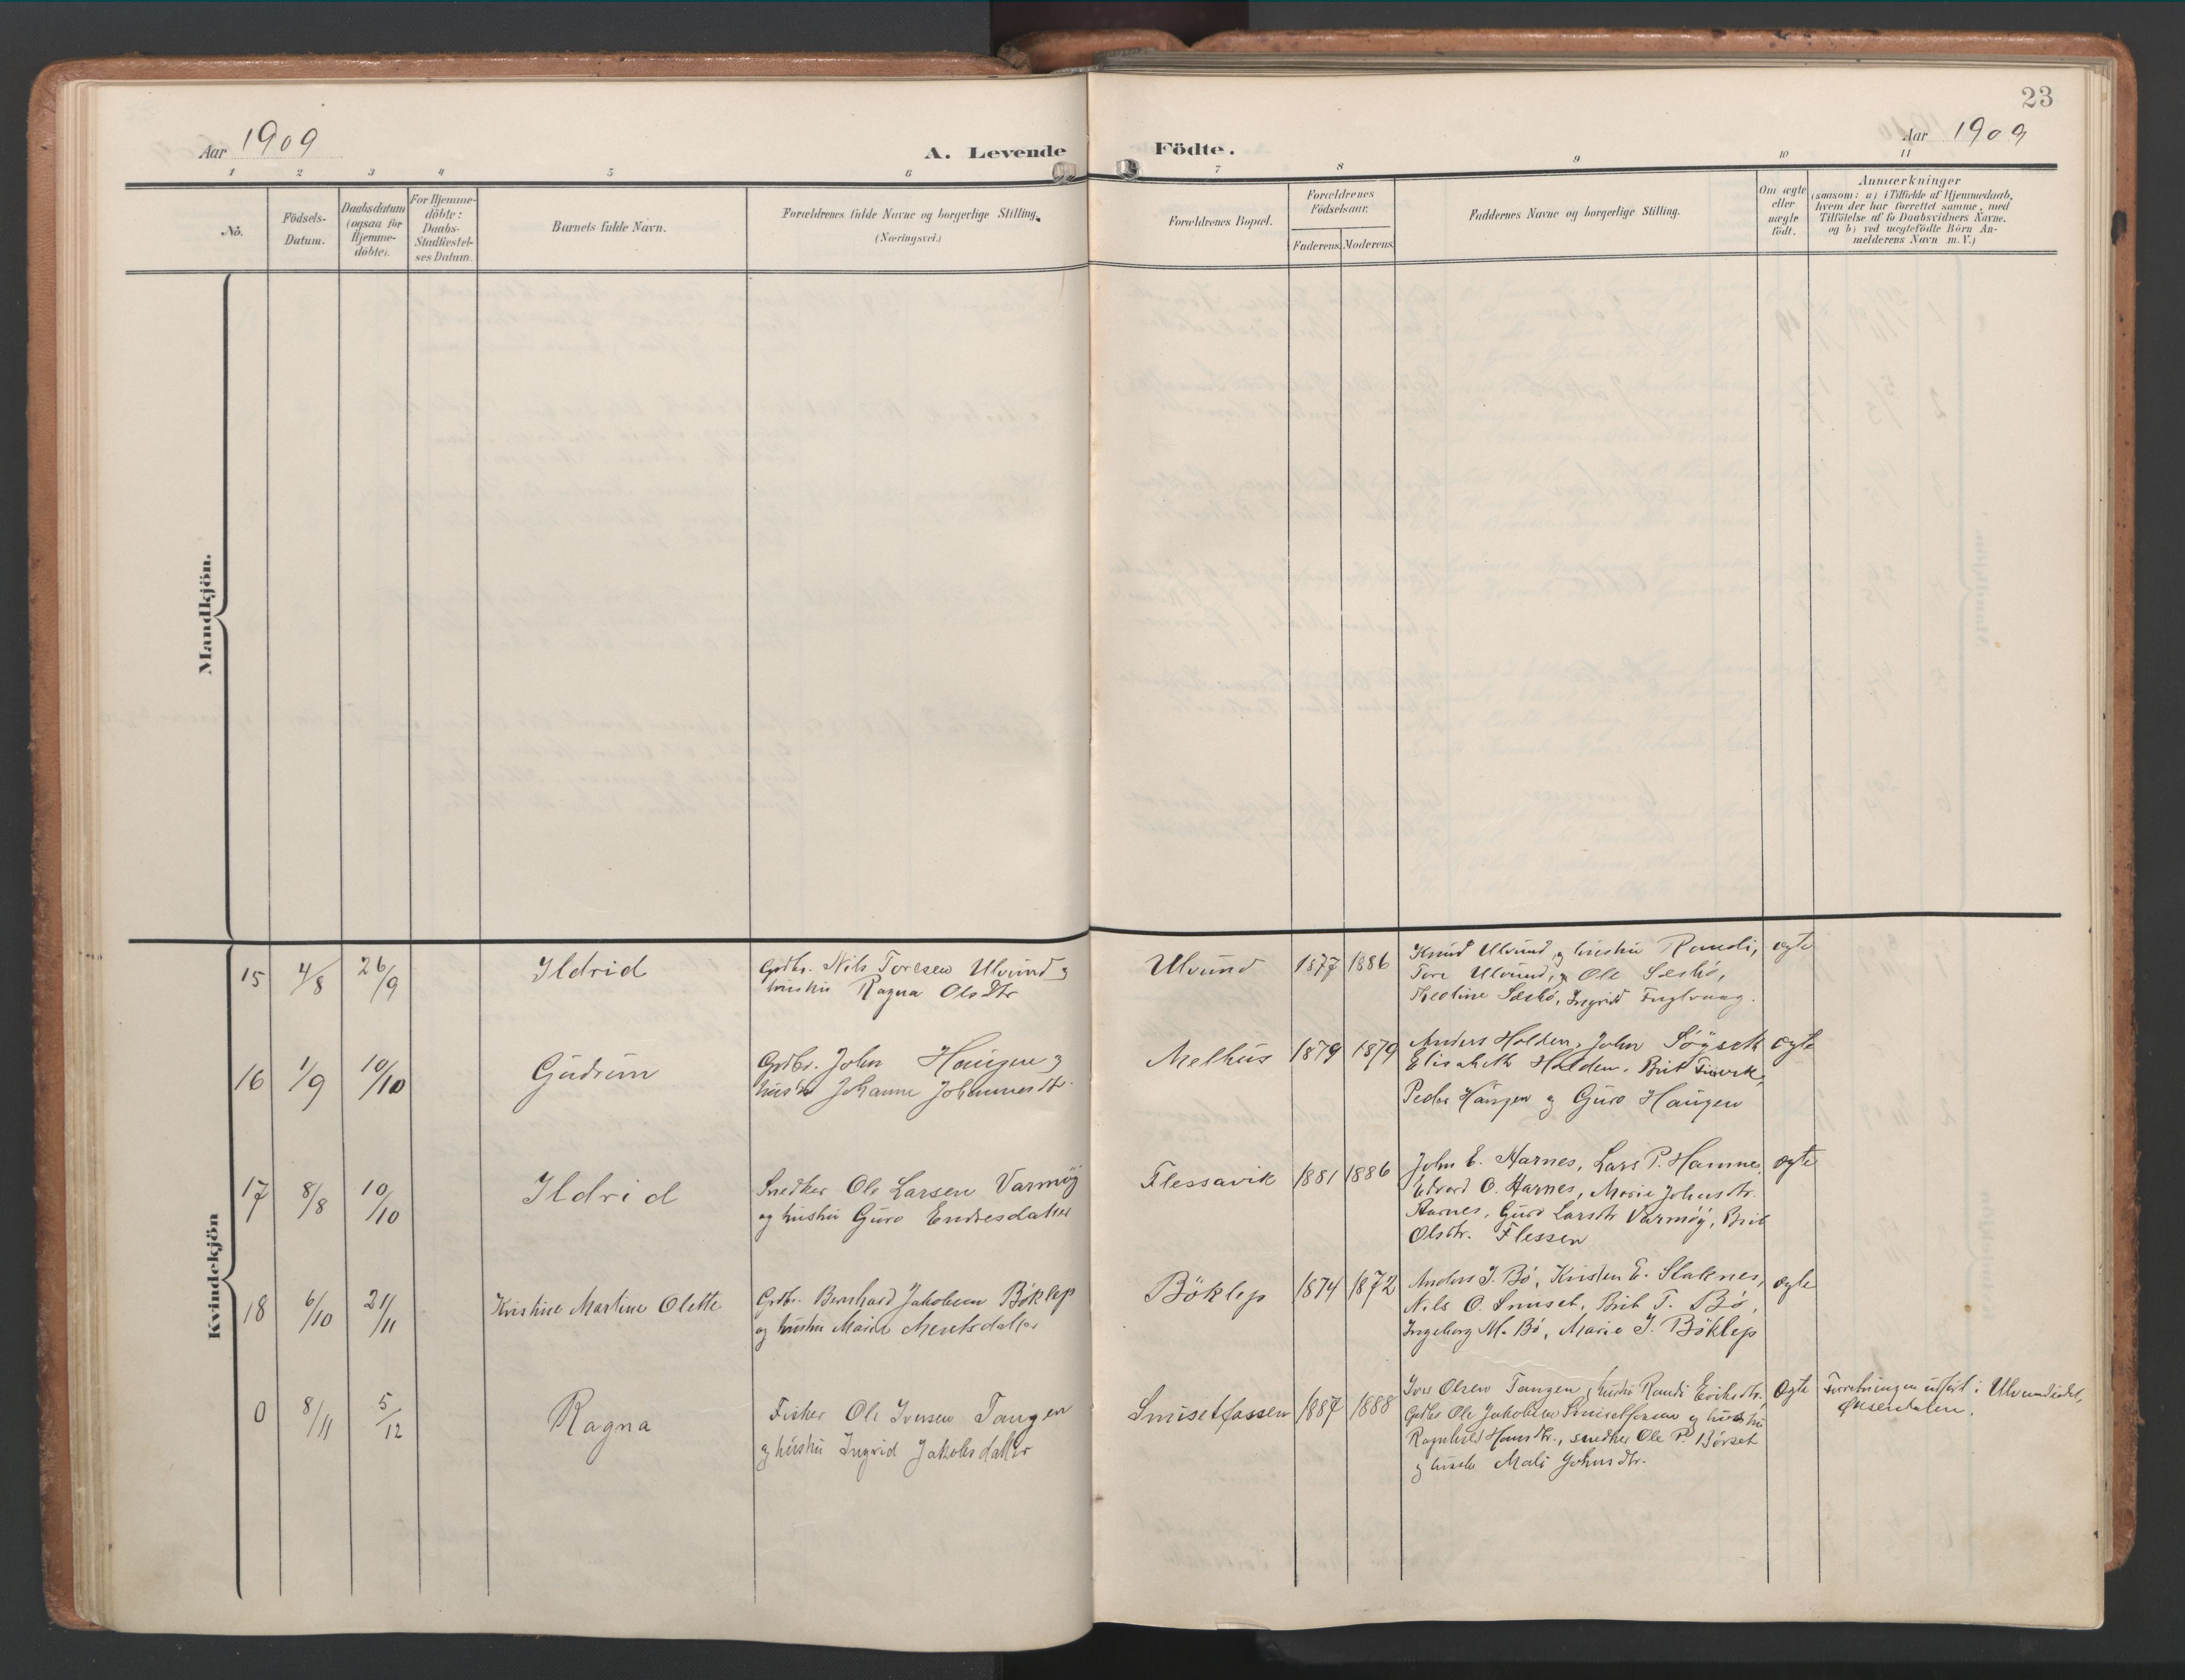 23
Aar 1909
A. Levende Födte.
Aar 1909
1 2 3 4 5 6 7 8 9 10 11
No.
Födsels-
Datum.
Daabsdatum
(ogsaa for
Hjemme-
döbte).
For Hjemme-
döbte:
Daabs-
Stadfæstel-
ses Datum.
Barnets fulde Navn.
Forældrenes fulde Navne og borgerlige Stilling.
(Næringsvei.)
Forældrenes Bopæl.
Forældrenes
Födselsaar.
Faderens. Moderens.
Faddernes Navne og borgerlige Stilling.
Om ægte
eller
uægte
födt.
Anmærkninger
(saasom: a) i Tilfælde af Hjemmedaab,
hvem der har forrettet samme, med
Tilföielse af to Daabsvidners Navne,
og b) ved uægtefödte Börn An-
melderens Navn m. V.)
Mandkjön.
Kvindekjön
15 4/8 26/9 Ildrid
Grdbr. Nils Toresen Ulvund og
hustru Ragna Olsdtr
Ulvund 1877 1886
Knud Ulvund og hustru Randi,
Tore Ulvund, og Ole Sæsbö,
Sæsbö, Ingrid Fuglvaag.
ægte
16 1/9 10/10 Gudrun
Grdbr. John Haugen og
hustr Johanne Johannesdtr
Melhus 1879 1879
Anders Holden, John Sögseth
Elisabeth Holden, Brit
Peder Haugen og Guro Haugen
ægte
17 8/8 10/10 Ildrid
Snedker Ole Larsen Varmöy
og hustru Guro Endresdatter
Flessavik 1881 1886
John E. Harnes, Lars P. Hamnes,
Edvard O. Harnes, Marie Johnsdtr.
Harnes, Guro Larsdtr Varmöy, Brit
Olsdtr. Flessen
ægte
18 6/10 21/11 Kristine Martine Olette
Grdbr. Bernhard Jakobsen Böklep
og hustru Marit
Böklep 1874 1872
Anders J. Bö, Kristen E. Slaknes,
Nils O. Smiset, Brit T. Bö,
Ingeborg M. Bö, Marie J. Böklep
ægte
0 8/11 5/12 Ragna
Fisker Ole Iversen Tangen
og hustru Ingrid Jakobsdatter
Smisetfossen 1887 1888
Iver Olsen Tangen, hustru Randi Eriksdtr,
Grdbr Ole Jakobsen Smisetfossen og hustru
Ragnhild Hansdtr., snedker Ole P. Börset
og hustr Mali Johnsdtr.
ægte
Forretningen utfört i Ulvundeidet,
Öksendalen.